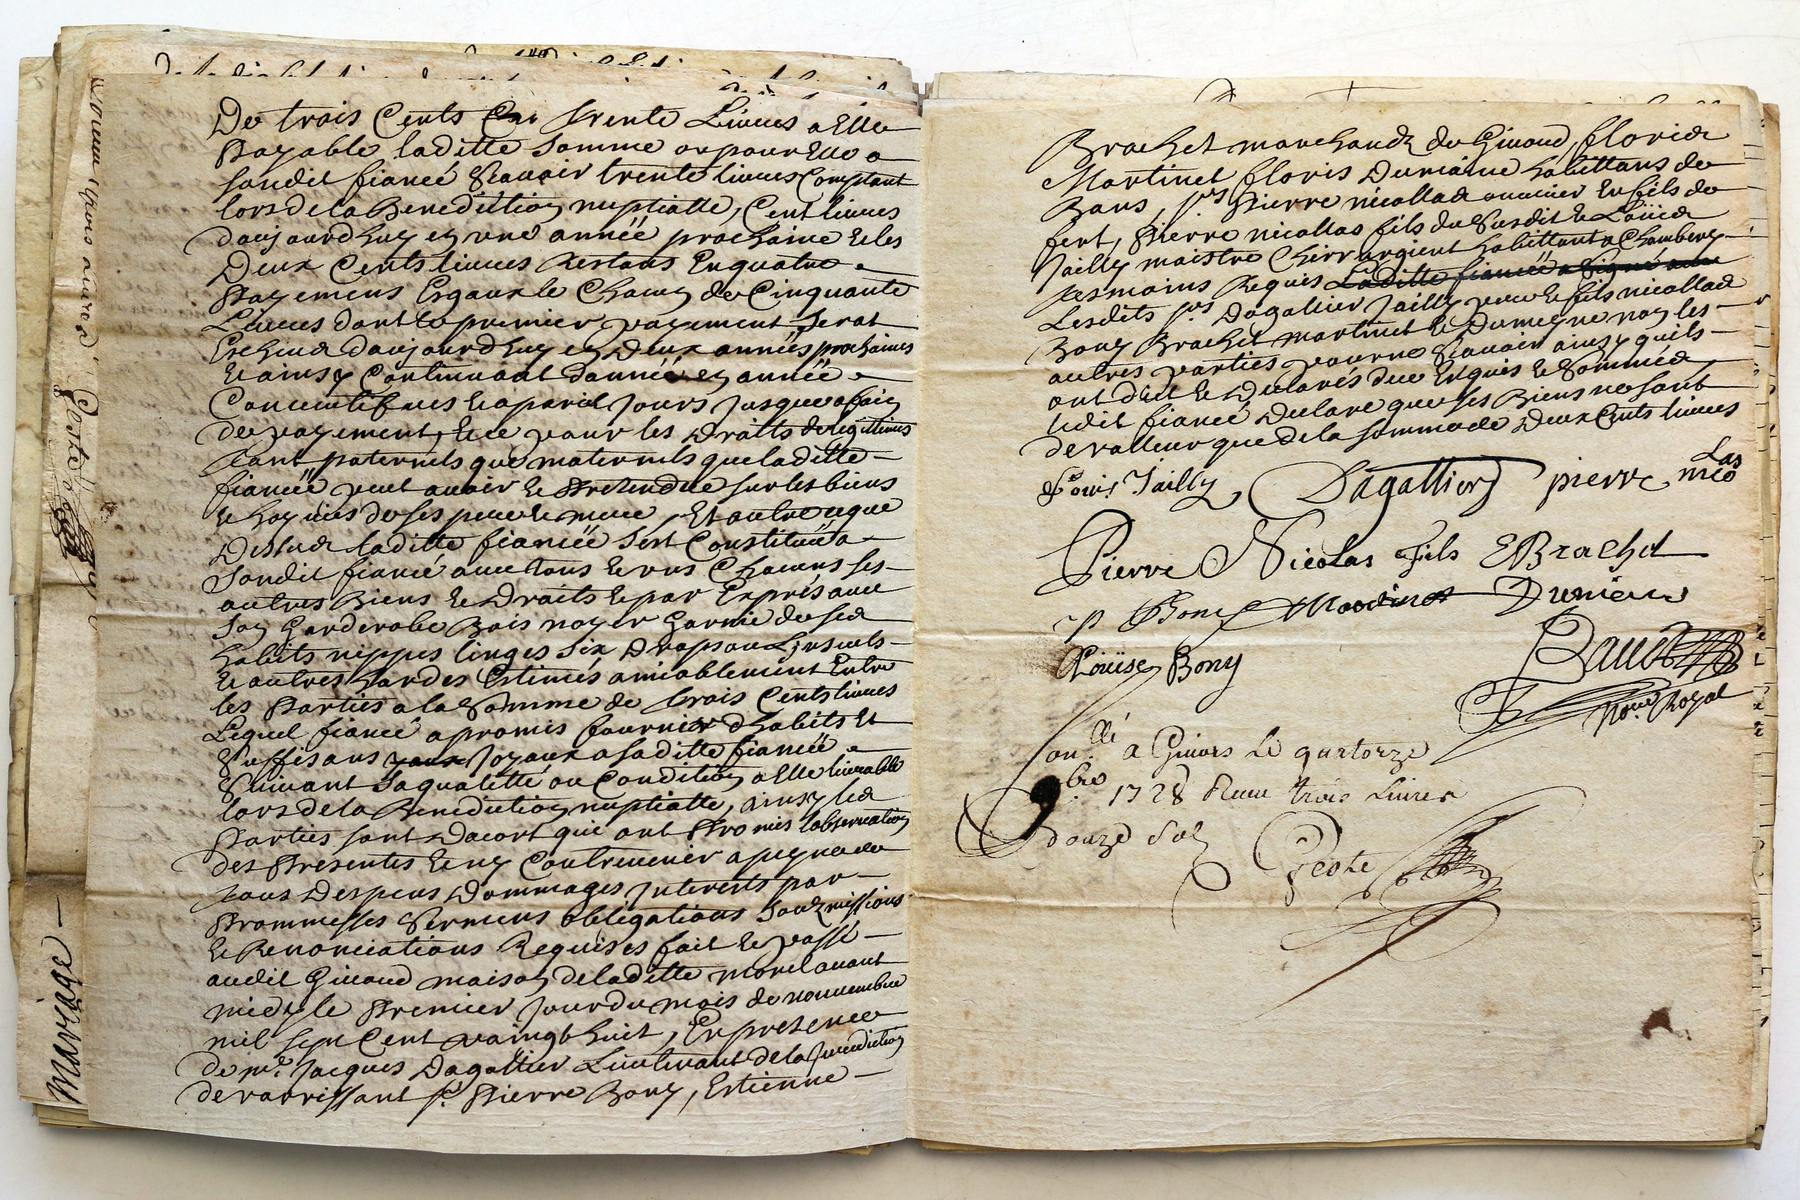 De trois Cents Trente Livres a Elle
Payable laditte Somme ou pour Elle a
sondit fiancé Scauoir trente liures Comptant
lors de la Benediction nuptialle, Cent liures
daujourdhuy en une année prochaine & les
Deux Cents liures Restans En quatre
Payemens Esgaux le Chacun de Cinquante
Liures dont le premier payement Serat
Escheud daujourdhuy en Deux années prochaines
& ainsy Continuant dannée en année
Concecutifues & a pareil jours jusques a fin
de payement, & ce pour les Droits de legittimes
tant paternels que maternels que laditte
fiancée peut auoir & Pretendre sur les biens
& hoyries de ses pere & mere, Et outre ce que
Dessus laditte fiancée sest Constituée a
Sondit fiancé auec tous & uns Chacuns ses
autres Biens & Droits & par Exprès auec
Son Garderobe Bois noyer Garnie de ses
habits nippes linges Six Draps ou Linceuls
& autres hardes Estimés amiablement Entre
les Parties a la Somme de trois Cents liures
Lequel fiancé a promis fournir dhabits Et
Suffisans joyaux a saditte fiancée
Suiuant Sa qualitté ou Condition a Elle liurable
lors de la Benediction nuptialle, ainsy les
Parties sont Dacort qui ont Promis lobseruation
des Presentes & ny Contreuenir a peyne de
tous Despens Dommages jnterests par
Prommesses Sermens obligations Soubzmissions
& Renonciations Requises fait & passé
audit Giuord maison de laditte morel auant
midy le Premier jour du mois de nouuembre
mil sept Cent vaingt huit, En presence
de me. Jacques Dagallier Lieutenant de la jurediction
de sr. Pierre Bony, Estienne
Mariage
Brachet marchands de Giuord, floris
Martinet floris Dumaine habittans de
Bans, srs Pierre nicollas & fils de
Pierre nicollas fils du Susdit & Loüis
Jailly maistre Chirurgient habittant a Chambery
tesmoins Requis Laditte fiancée a Signé auec
Lesdits srs Dagallier Jailly pere & fils nicollas
Bony Brachet martinet & Dumeyne non les
autres parties pour ne Scauoir ainsy quils
ont dit & Declarés due Enquis & Sommés
ledit fiancé Declare que ses Biens ne sont
de valleur que de la somme de Deux Cents liures
Louis Jailly Dagallier pierre nicolas
Pierre Nicolas fils E Brachet
p Bony Martinet Dumeine
Loüise Bony
Baud
Nore. Royal
Con.llé a Giuors Le quatorze
9bre 1728 Receu trois Liures
douze Solz
Peste